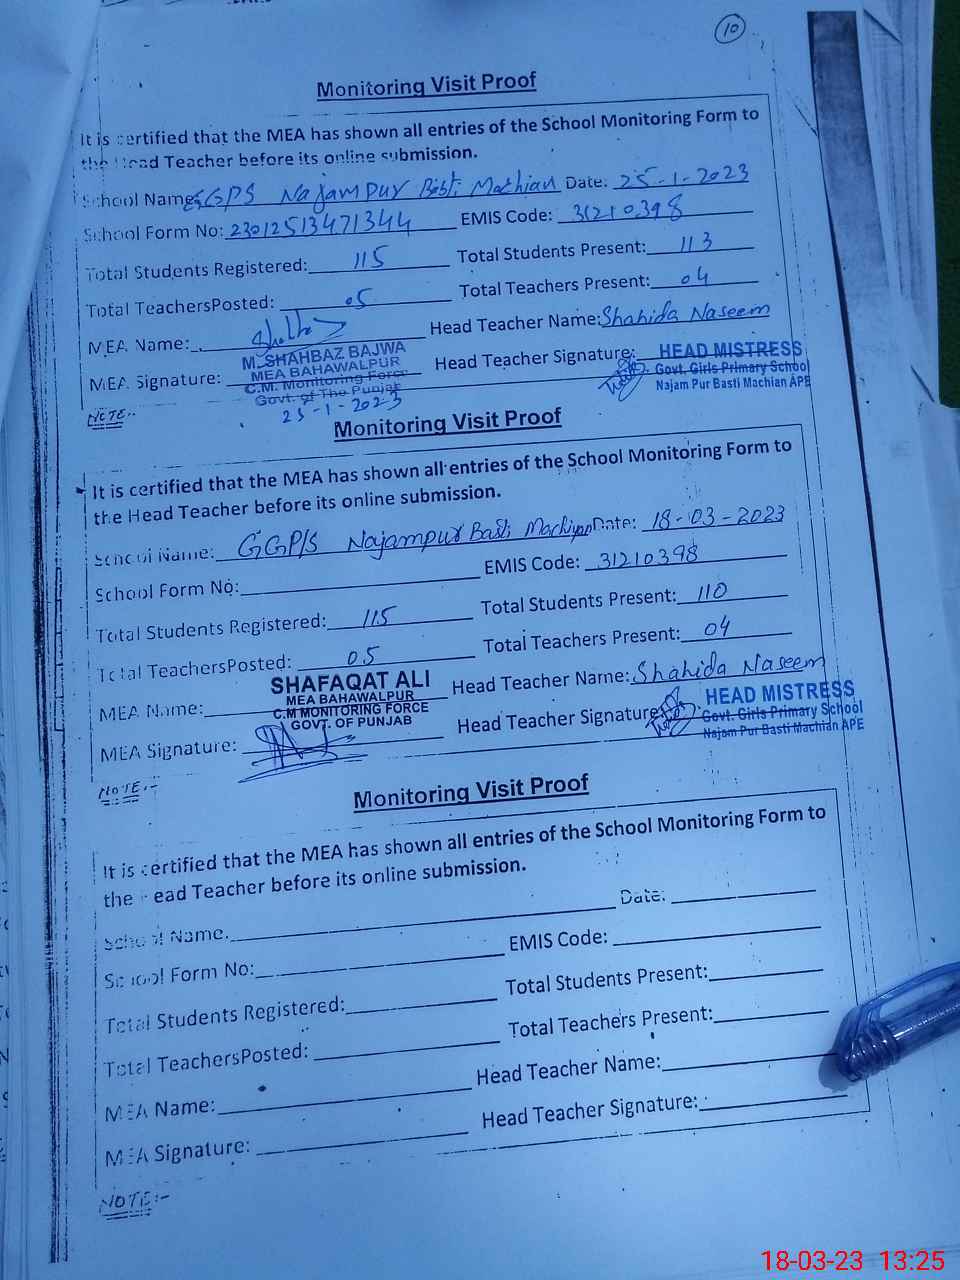 10
Monitoring Visit Proof
It is certified that the MEA has shown all entries of the School Monitoring Form to
the Head Teacher before its online submission.
School Name: GGPS Najampur Basti Machian Date: 25-1-2023
School Form No: 23012513471344 EMIS Code: 31210398
Total Students Registered: 115 Total Students Present: 113
Total TeachersPosted: 05 Total Teachers Present: 04
MEA Name: Head Teacher Name: Shahida Naseem
M. SHAHBAZ BAJWA
MEA BAHAWALPUR
C.M. Monitoring Force
Govt. of The Punjab
MEA Signature: Head Teacher Signature:
HEAD MISTRESS
Govt. Girls Primary School
Najam Pur Basti Machian APE
25-1-2023
NOTE:-
Monitoring Visit Proof
It is certified that the MEA has shown all entries of the School Monitoring Form to
the Head Teacher before its online submission.
School Name: GGP/S Najampur Basti Machiyan Date: 18-03-2023
School Form No: EMIS Code: 31210398
Total Students Registered: 115 Total Students Present: 110
Total TeachersPosted: 05 Total Teachers Present: 04
MEA Name: Head Teacher Name: Shahida Naseem
SHAFAQAT ALI
MEA BAHAWALPUR
C.M MONITORING FORCE
GOVT. OF PUNJAB
MEA Signature: Head Teacher Signature
HEAD MISTRESS
Govt. Girls Primary School
Najam Pur Basti Machian APE
NOTE:-
Monitoring Visit Proof
It is certified that the MEA has shown all entries of the School Monitoring Form to
the Head Teacher before its online submission.
School Name. Date:
School Form No: EMIS Code:
Total Students Registered: Total Students Present:
Total TeachersPosted: Total Teachers Present:
MEA Name: Head Teacher Name:
MEA Signature: Head Teacher Signature:
NOTE:-
18-03-23 13:25